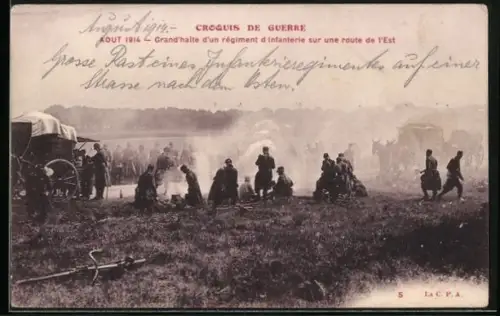 CROQUIS DE GUERRE
August 1914.-
AOUT 1914 — Grand'halte d'un régiment d'Infanterie sur une route de l'Est
Grosse Rast eines Infanterieregimentes auf einer
Strasse nach dem Osten.
5 LA C. P. A.